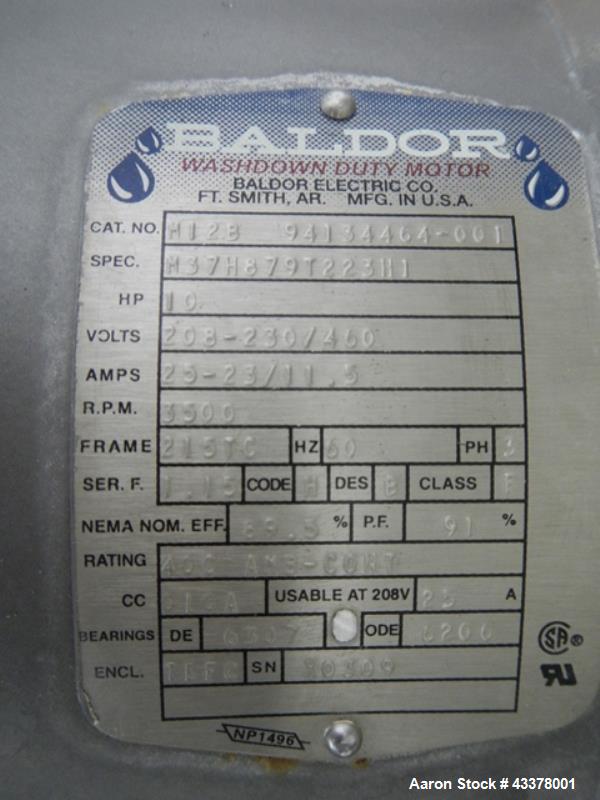 BALDOR
WASHDOWN DUTY MOTOR
BALDOR ELECTRIC CO.
FT. SMITH, AR. MFG. IN U.S.A.
CAT. NO. M128 94134464-001
SPEC. M37H879T223H1
HP 10
VOLTS 208-230/460
AMPS 25-23/11.5
R.P.M. 3500
FRAME 215TC HZ 60 PH 3
SER. F. 1.15 CODE H DES B CLASS F
NEMA NOM. EFF. 89.5 % P.F. 91 %
RATING 40C AMB-CONT
CC 010A USABLE AT 208V 25 A
BEARINGS DE 6307 ODE 6206
ENCL. TEFC SN
NP1496
Aaron Stock # 43378001